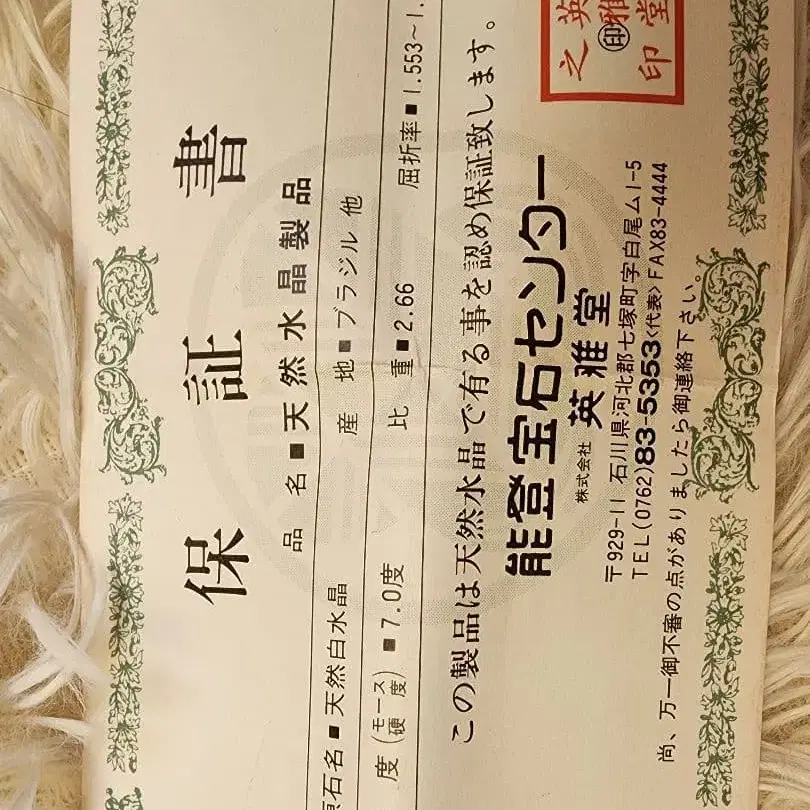 保証書
品名■天然水晶製品
石名■天然白水晶 産地■ブラジル 他
度(モース硬度)■7.0度 比重■2.66 屈折率■1.553~1.
この製品は天然水晶で有る事を認め保証致します。
能登宝石センター
株式会社 英雅堂
〒929-11 石川県河北郡七塚町字白尾ム1-5
TEL(0762)83-5353<代表>FAX83-4444
尚、万一御不審の点がありましたら御連絡下さい。
英雅堂
之印
印